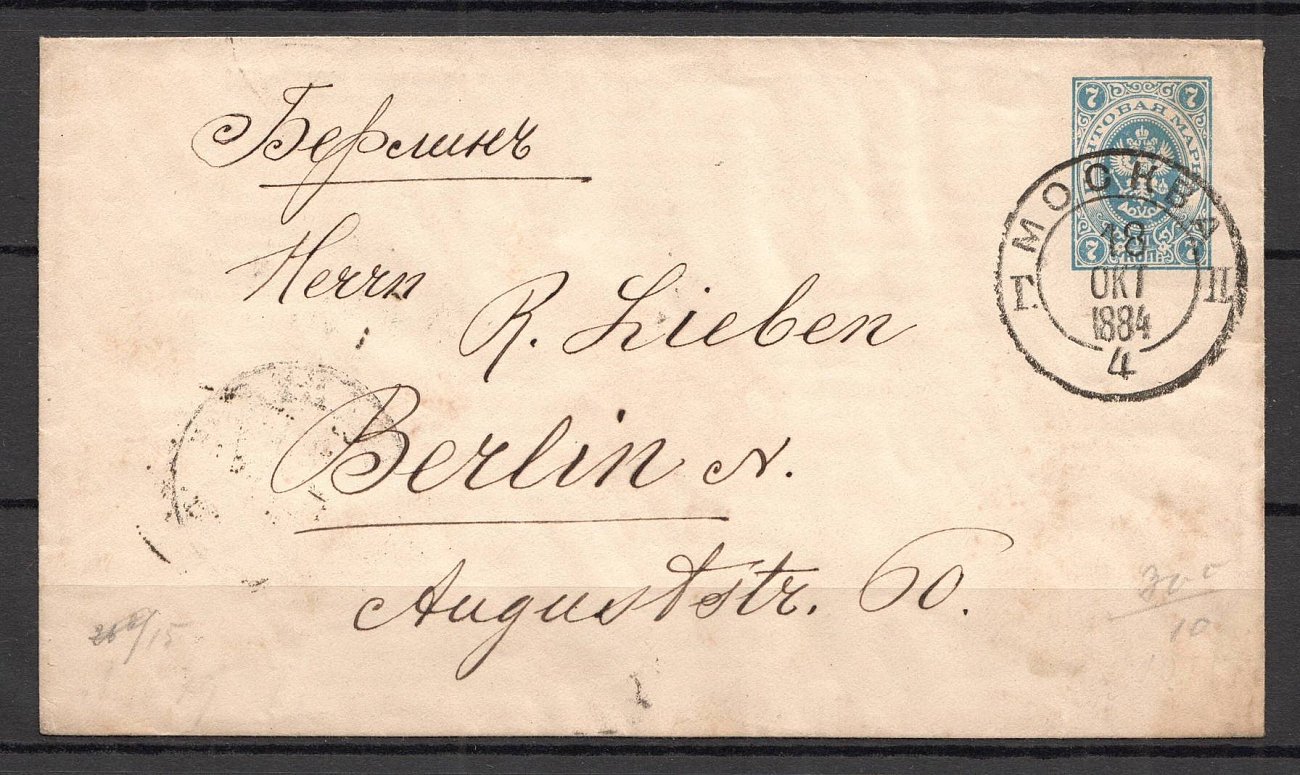 Берлинъ
7 7
ПОЧТОВАЯ МАРКА
7 7
МОСКВА
18
ОКТ
1884
Г. П.
4
Herrn
R. Lieben
Berlin N.
Auguststr. 60.
15
30
10